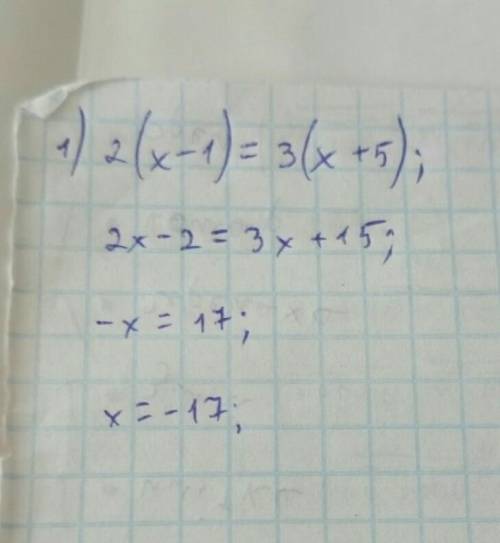 1) 2(x-1)= 3(x+5);
2x-2=3x+15;
-x = 17;
x=-17;